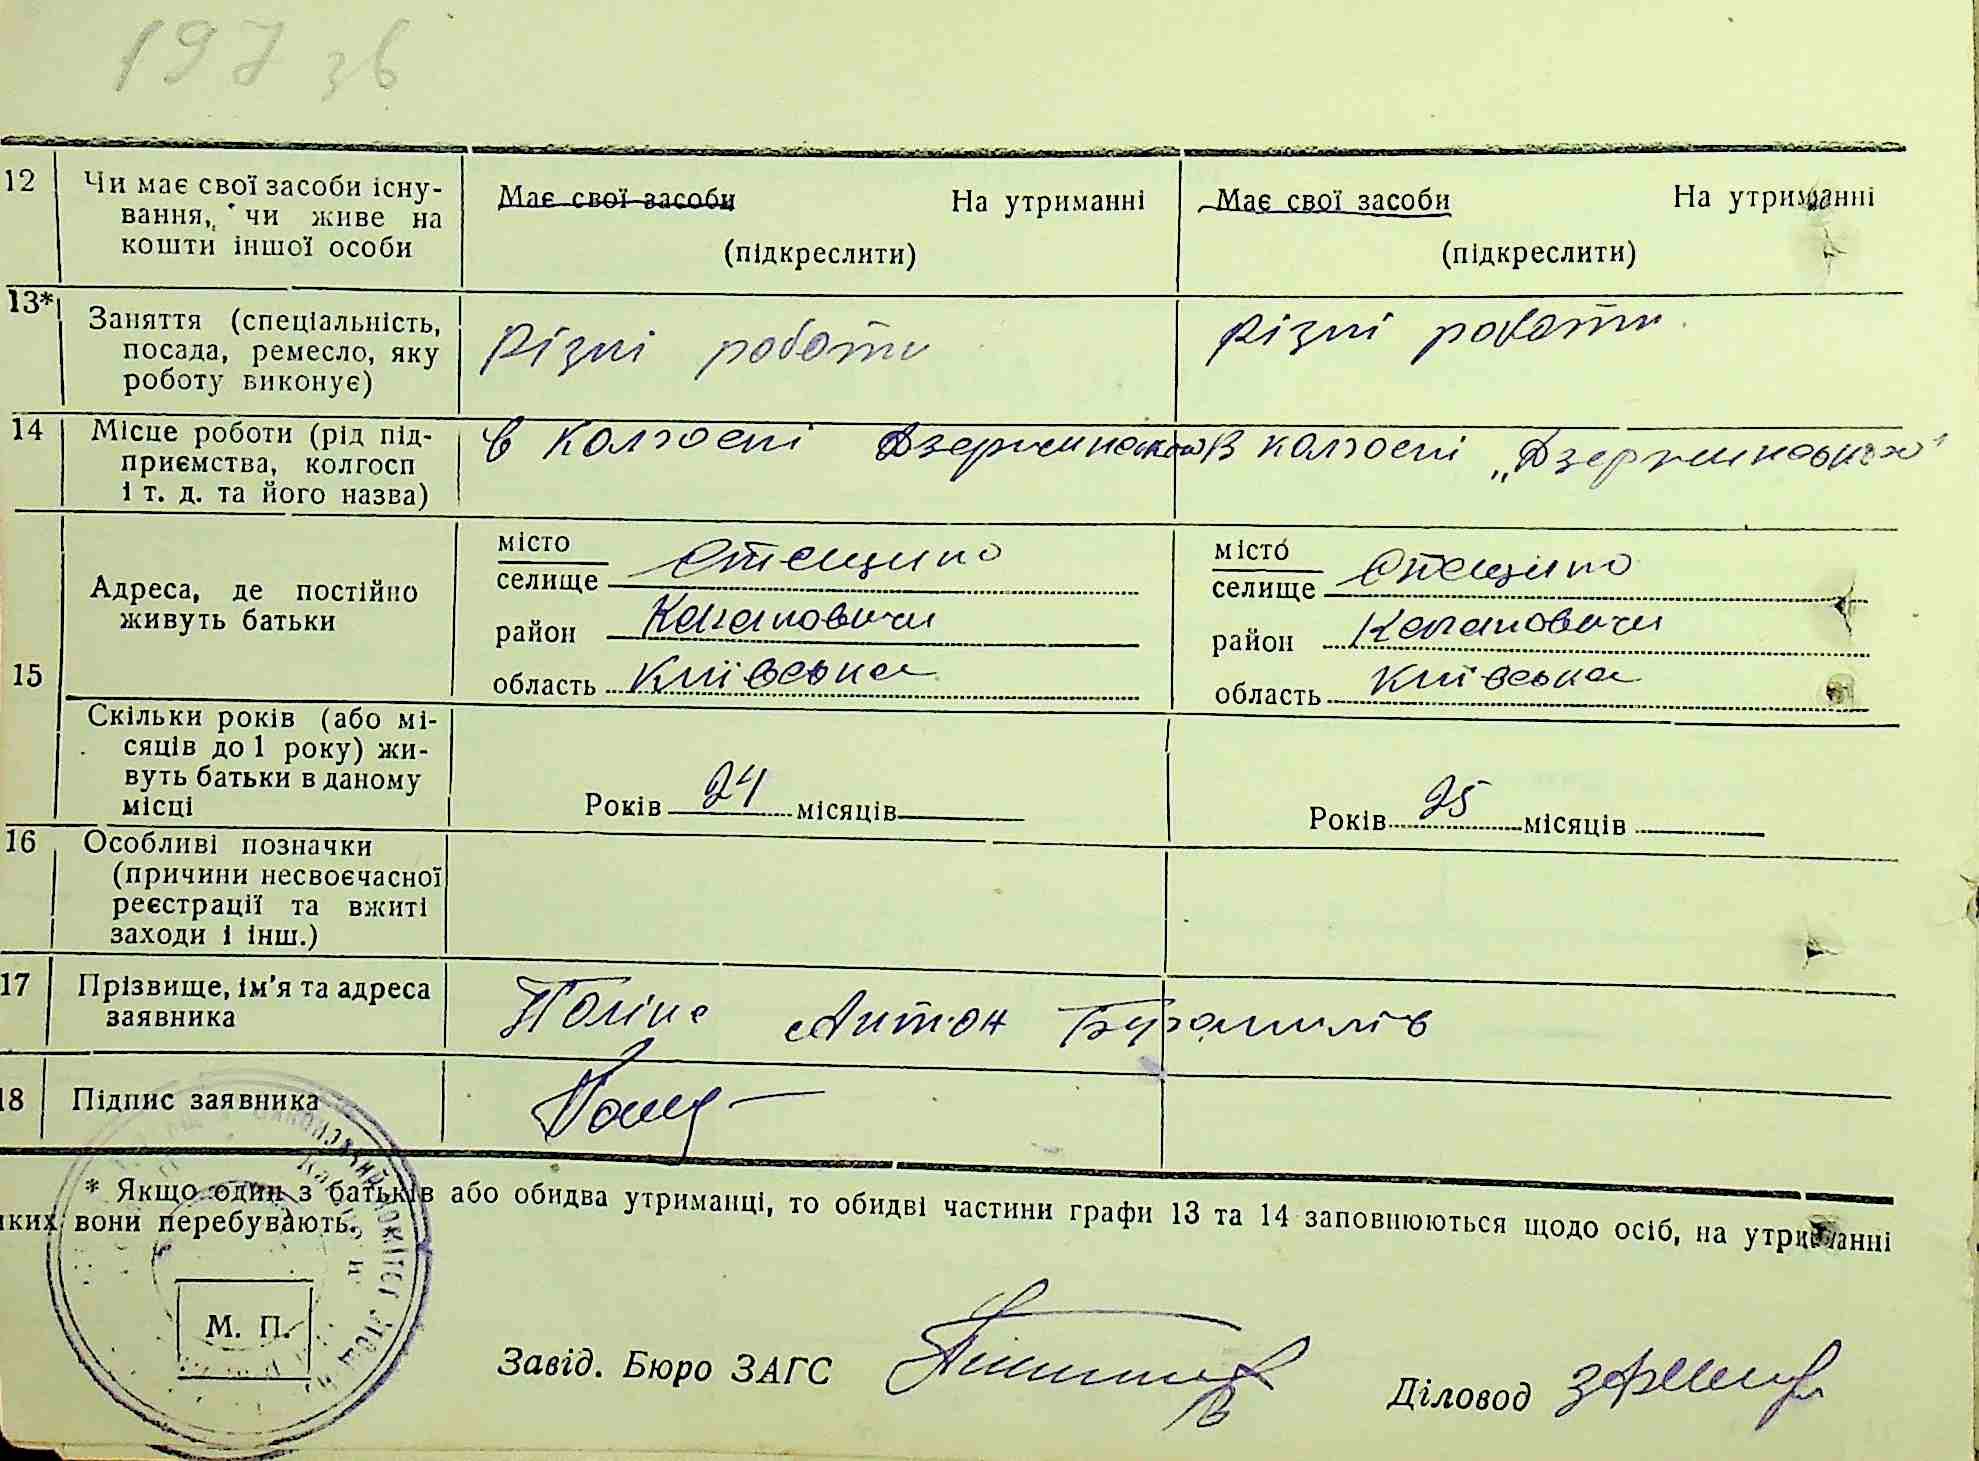 197 зв
12 Чи має свої засоби існу- Має свої засоби На утриманні Має свої засоби На утриманні
вання, чи живе на
кошти іншої особи (підкреслити) (підкреслити)
13* Заняття (спеціальність, різні роботи різні роботи
посада, ремесло, яку
роботу виконує)
14 Місце роботи (рід під- в колгоспі Дзержинського в колгоспі „Дзержинського"
приємства, колгосп
і т. д. та його назва)
15 Адреса, де постійно
живуть батьки
місто місто
селище селище
район Каганович район Каганович
область Київська область Київська
Скільки років (або мі-
сяців до 1 року) жи-
вуть батьки в даному
місці Років 24 місяців Років 25 місяців
16 Особливі позначки
(причини несвоєчасної
реєстрації та вжиті
заходи і інш.)
17 Прізвище, ім'я та адреса Антон
заявника
18 Підпис заявника
* Якщо один з батьків або обидва утриманці, то обидві частини графи 13 та 14 заповнюються щодо осіб, на утриманні
яких вони перебувають.
М. П.
Завід. Бюро ЗАГС Діловод